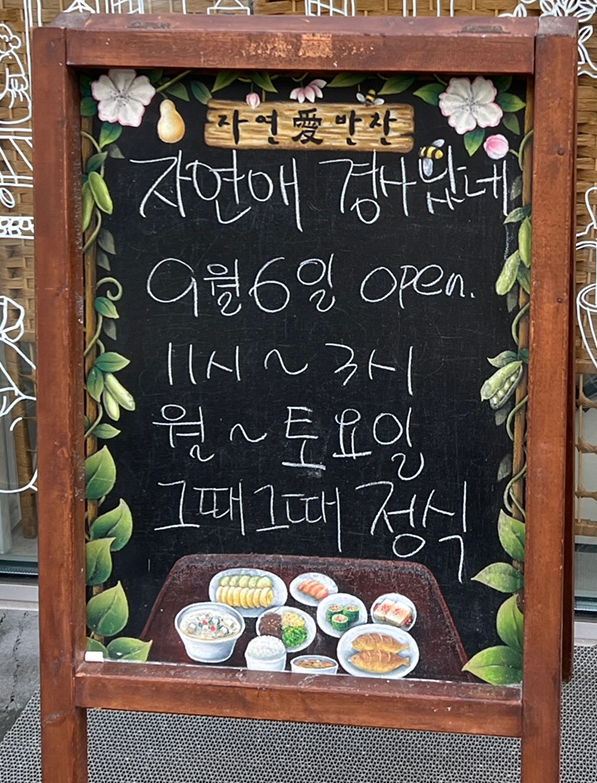 자연愛반찬
자연애 경사났네
9월6일 open.
11시 ~ 3시
월 ~ 토요일
그때그때 정식